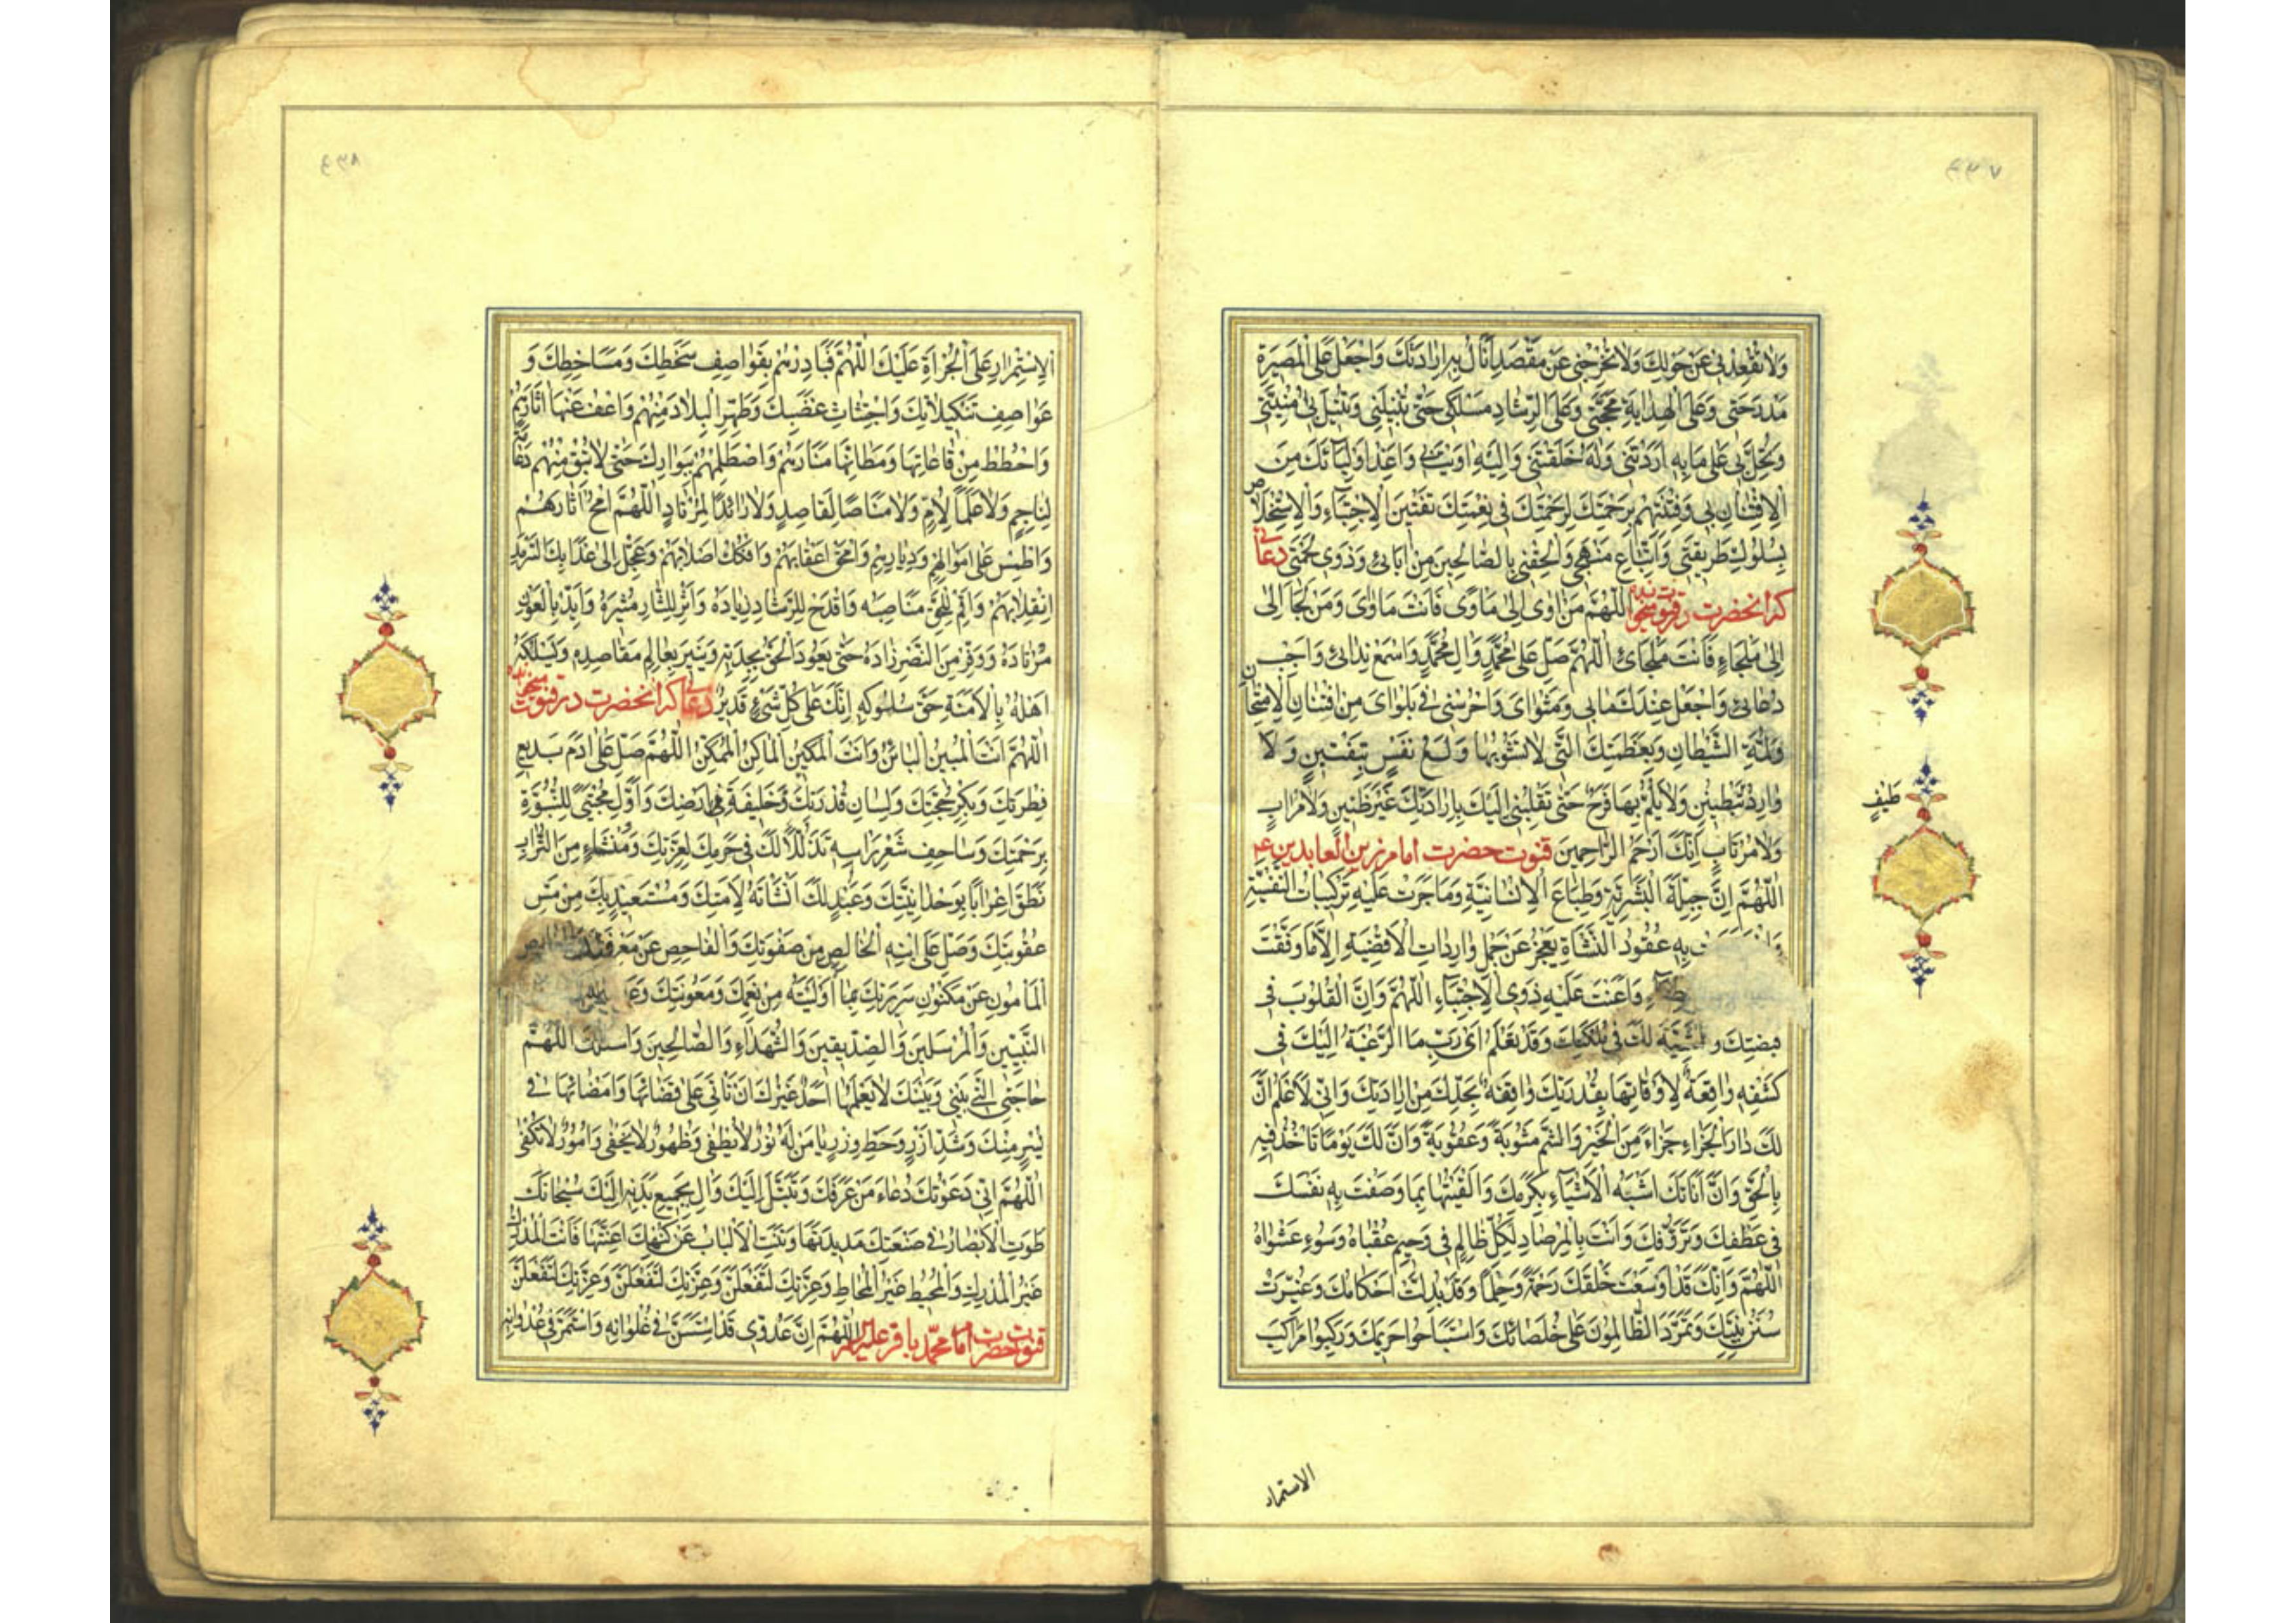 وَلاٰ تُقْعِدْنى عَنْ حَوْلِكَ وَلاٰ تُخْرِجْنى عَنْ مَقْصَدٍ اَنٰالُ بِهِ اِرٰادَتَكَ وَاجْعَلْ عَلَى الْبَصيرَةِ
مَدْرَجَتى وَعَلَى الْهِدٰايَةِ مَحَجَّتى وَعَلَى الرَّشٰادِ مَسْلَكى حَتّٰى تُنيلَنى وَتُنيلَ بى اُمْنِيَّتى
وَتُحِلَّ بى عَلىٰ مٰا بِهِ اَرَدْتَنى وَلَهُ خَلَقْتَنى وَاِلَيْهِ اٰوَيْتَ بى وَاَعِذْ اَوْلِيٰائَكَ مِنَ
الْاِفْتِتٰانِ بى وَفَتِّنْهُمْ بِرَحْمَتِكَ لِرَحْمَتِكَ فى نِعْمَتِكَ تَفْتينَ الْاِجْتِبٰاءِ وَالْاِسْتِخْلاٰص
بِسُلُوكِ طَريقَتى وَاتِّبٰاعِ مَنْهَجى وَاَلْحِقْنى بِالصّٰالِحينَ مِنْ اٰبٰائى وَذَوى لُحْمَتى دعائى
كه انحضرت در قنوت ميخوانده اَللّٰهُمَّ مَنْ اَوىٰ اِلىٰ مَأْوىً فَاَنْتَ مَأْوٰىَ وَمَنْ لَجَأَ اِلىٰ
اِلىٰ مَلْجَاءٍ فَاَنْتَ مَلْجٰاىَ اَللّٰهُمَّ صَلِّ عَلىٰ مُحَمَّدٍ وَاٰلِ مُحَمَّدٍ وَاسْمَعْ نِدٰائى وَاَجِبْ
دُعٰائى وَاجْعَلْ عِنْدَكَ مَاٰبى وَمَثْوٰاىَ وَاحْرُسْنى فى بَلْوٰاىَ مِنِ افْتِنٰانِ الْاِمْتِحٰانِ
وَلَمَّةِ الشَّيْطٰانِ وَبِعَظَمَتِكَ الَّتى لاٰ يَشُوبُهٰا وَلَعُ نَفْسٍ بِتَفْتينٍ وَلاٰ
وٰارِدُ تَبْطينٍ وَلاٰ يَلُمُّ بِهٰا فَرَحٌ حَتّٰى تَقْلِبَنى اِلَيْكَ بِاِرٰادَتِكَ غَيْرَ ظَنينٍ وَلاٰ مُرٰابٍ
طيف
وَلاٰ مُرْتٰابٍ اِنَّكَ اَرْحَمُ الرّٰاحِمينَ قنوت حضرت امام زين العابدين ع
اَللّٰهُمَّ اِنَّ جِبِلَّةَ الْبَشَرِيَّةِ وَطِبٰاعَ الْاِنْسٰانِيَّةِ وَمٰا جَرَتْ عَلَيْهِ تَرْكيبٰاتُ النَّفْسِيَّةِ
بِهِ عُقُودُ النَّشْاَةِ يَعْجِزُ عَنْ حَمْلِ وٰارِدٰاتِ الْاَقْضِيَةِ اِلاّٰ مٰا وَفَّقْتَ
وَاَعَنْتَ عَلَيْهِ ذَوِى الْاِجْتِبٰاءِ اَللّٰهُمَّ وَاِنَّ الْقُلُوبَ فى
قَبْضَتِكَ وَالْمَشِيَّةَ لَكَ فى مُلْكِكَ وَقَدْ تَعْلَمُ اَىْ رَبِّ مَا الرَّغْبَةُ اِلَيْكَ فى
كَشْفِهِ وٰاقِعَةٌ لِاَوْقٰاتِهٰا بِقُدْرَتِكَ وٰاقِفَةٌ بِحَدِّكَ مِنْ اِرٰادَتِكَ وَاِنّى لَاَعْلَمُ اَنَّ
لَكَ دٰارَ الْجَزٰاءِ جَزٰاءً مِنَ الْخَيْرِ وَالشَّرِّ مَثُوبَةً وَعُقُوبَةً وَاَنَّ لَكَ يَوْمًا تَأْخُذُ فيهِ
بِالْحَقِّ وَاَنَّ اَنٰاتَكَ اَشْبَهُ الْاَشْيٰاءِ بِكَرَمِكَ وَاَلْيَقُهٰا بِمٰا وَصَفْتَ بِهِ نَفْسَكَ
فى عَطْفِكَ وَتَرَؤُّفِكَ وَاَنْتَ بِالْمِرْصٰادِ لِكُلِّ ظٰالِمٍ فى وَخيمِ عُقْبٰاهُ وَسُوءِ مَثْوٰاهُ
اَللّٰهُمَّ وَاِنَّكَ قَدْ اَوْسَعْتَ خَلْقَكَ رَحْمَةً وَحِلْمًا وَقَدْ بُدِّلَتْ اَحْكٰامُكَ وَغُيِّرَتْ
سُنَنُ نَبِيِّكَ وَتَمَرَّدَ الظّٰالِمُونَ عَلىٰ خُلَصٰائِكَ وَاسْتَبٰاحُوا حَريمَكَ وَرَكِبُوا مَرٰاكِبَ
الاستمرار
اَلْاِسْتِمْرٰارِ عَلَى الْجُرْاَةِ عَلَيْكَ اَللّٰهُمَّ فَبٰادِرْهُمْ بِقَوٰاصِفِ سَخَطِكَ وَمَسٰاخِطِكَ وَ
عَوٰاصِفِ تَنْكيلاٰتِكَ وَاجْتِثٰاثِ غَضَبِكَ وَطَهِّرِ الْبِلاٰدَ مِنْهُمْ وَاعْفُ عَنْهٰا اٰثٰارَهُمْ
وَاحْطُطْ مِنْ قٰاعٰاتِهٰا وَمَظٰانِّهٰا مَنٰارَهُمْ وَاصْطَلِمْهُمْ بِبَوٰارِكَ حَتّٰى لاٰ تُبْقِ مِنْهُمْ
لِنٰاجِمٍ وَلاٰ عَلَمًا لِاٰمٍّ وَلاٰ مَنٰاصًا لِقٰاصِدٍ وَلاٰ رٰائِدًا لِمُرْتٰادٍ اَللّٰهُمَّ امْحُ اٰثٰارَهُمْ
وَاطْمِسْ عَلىٰ اَمْوٰالِهِمْ وَدِيٰارِهِمْ وَامْحَقْ اَعْقٰابَهُمْ وَافْكُكْ اَصْلاٰبَهُمْ وَعَجِّلْ اِلىٰ عَذٰابِكَ السَّرْمَدِ
اِنْقِلاٰبَهُمْ وَاَقِمْ لِلْحَقِّ مَنٰاصِبَهُ وَاقْدَحْ لِلرَّشٰادِ زِنٰادَهُ وَاَثِرْ لِلثّٰارِ مُثيرَهُ وَاَيِّدْ بِالْعَوْنِ
مُرْتٰادَهُ وَوَفِّرْ مِنَ النَّصْرِ زٰادَهُ حَتّٰى يَعُودَ الْحَقُّ بِجِدَّتِهِ وَيُنيرَ مَعٰالِمَ مَقٰاصِدِهِ وَيَسْلُكَهُ
اَهْلُهُ بِالْاَمَنَةِ حَقَّ سُلُوكِهِ اِنَّكَ عَلىٰ كُلِّ شَىْءٍ قَديرٌ دعائى كه انحضرت در قنوت ميخوانده
اَللّٰهُمَّ اَنْتَ الْمُبينُ الْبٰائِنُ وَاَنْتَ الْمَكينُ الْمٰاكِنُ الْمُمَكِّنُ اَللّٰهُمَّ صَلِّ عَلىٰ اٰدَمَ بَديعِ
فِطْرَتِكَ وَبِكْرِ حُجَّتِكَ وَلِسٰانِ قُدْرَتِكَ وَخَليفَةٍ فى اَرْضِكَ وَاَوَّلِ مُجْتَبىً لِلنُّبُوَّةِ
بِرَحْمَتِكَ وَسٰاحِفِ شَعْرِ رَاْسِهِ تَذَلُّلاً لَكَ فى حَرَمِكَ لِعِزَّتِكَ وَمُنْشَاءٍ مِنَ التُّرٰابِ
نَطَقَ اِعْرٰابًا بِوَحْدٰانِيَّتِكَ وَعَبْدٍ لَكَ اَنْشَاْتَهُ لِاَمَتِكَ وَمُسْتَعيذٍ بِكَ مِنْ مَسِّ
عُقُوبَتِكَ وَصَلِّ عَلَى ابْنِهِ الْخٰالِصِ مِنْ صَفْوَتِكَ وَالْفٰاحِصِ عَنْ مَعْرِفَتِكَ
الْمَأْمُونِ عَنْ مَكْنُونِ سَريرَتِكَ بِمٰا اَوْلَيْتَهُ مِنْ نِعَمِكَ وَمَعُونَتِكَ
النَّبِيّينَ وَالْمُرْسَلينَ وَالصِّدّيقينَ وَالشُّهَدٰاءِ وَالصّٰالِحينَ وَاَسْئَلُكَ اَللّٰهُمَّ
حٰاجَتِىَ الَّتى بَيْنى وَبَيْنَكَ لاٰ يَعْلَمُهٰا اَحَدٌ غَيْرُكَ اَنْ تَأْتِىَ عَلىٰ قَضٰائِهٰا وَاِمْضٰائِهٰا فى
يُسْرٍ مِنْكَ وَشَدِّ اَزْرٍ وَحَطِّ وِزْرٍ يٰا مَنْ لَهُ نُورٌ لاٰ يُطْفىٰ وَظُهُورٌ لاٰ يَخْفىٰ وَاُمُورٌ لاٰ تُكْفىٰ
اَللّٰهُمَّ اِنّى دَعَوْتُكَ دُعٰاءَ مَنْ عَرَفَكَ وَتَبَتَّلَ اِلَيْكَ وَاٰلَ بِجَميعِ بَدَنِهِ اِلَيْكَ سُبْحٰانَكَ
طَوَتِ الْاَبْصٰارُ فى صَنْعَتِكَ مَديدَتَهٰا وَثَنَتِ الْاَلْبٰابُ عَنْ كُنْهِكَ اَعِنَّتَهٰا فَاَنْتَ الْمُدْرِكُ
غَيْرُ الْمُدْرَكِ وَالْمُحيطُ غَيْرُ الْمُحٰاطِ وَعِزَّتِكَ لَتَفْعَلَنَّ وَعِزَّتِكَ لَتَفْعَلَنَّ وَعِزَّتِكَ لَتَفْعَلَنَّ
قنوت حضرت امام محمّد باقر عليه السلام اَللّٰهُمَّ اِنَّ عَدُوّى قَدِ اسْتَسَنَّ فى غُلُوٰائِهِ وَاسْتَمَرَّ فى عُدْوٰانِهِ